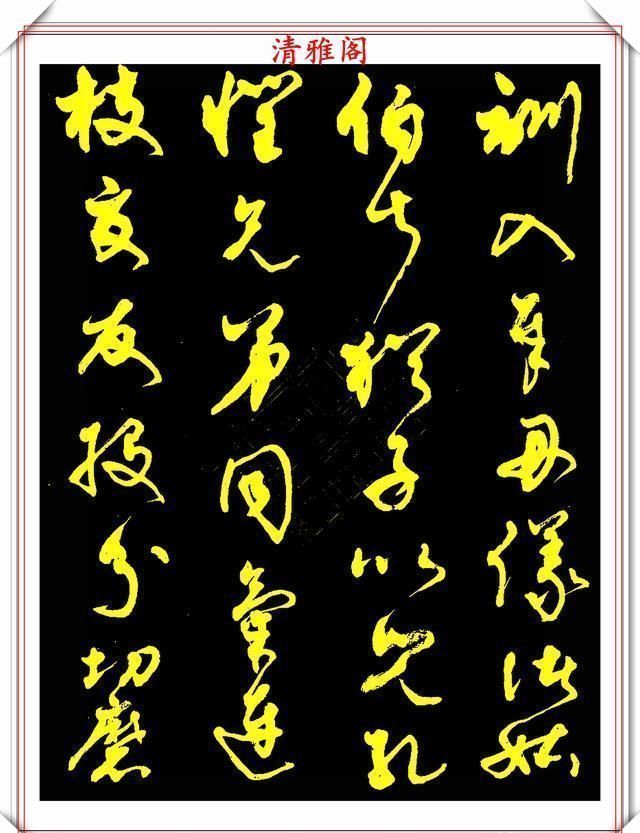 清雅阁
訓入奉母儀諸姑
伯叔猶子比兒孔
懷兄弟同氣連
枝交友投分切磨